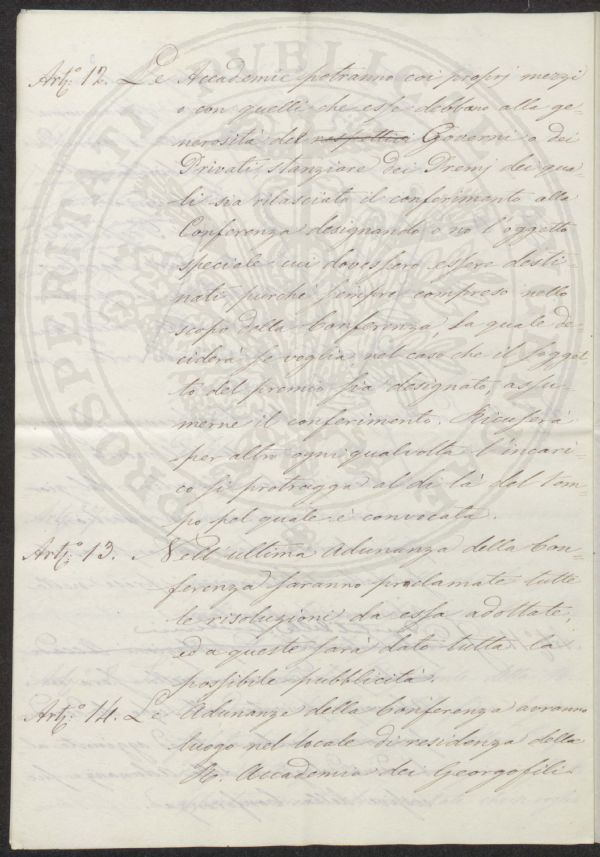 Art.º 12. Le Accademie potranno coi proprj mezzi
o con quelli che esse debbano alla ge-
nerosità del respettivi Governi o dei
Privati, stanziare dei Premj dei qua-
li sia rilasciato il conferimento alla
Conferenza designando o no l'oggetto
speciale cui dovessero essere desti-
nati, purchè sempre compreso nello
scopo della Conferenza, la quale de-
ciderà se voglia, nel caso che il sogget-
to del premio sia designato, assu-
merne il conferimento. Ricuserà
per altro ogni qual volta l'incari-
co si protragga al di là del tem-
po pel quale è convocata.
Art.º 13. Nell'ultima adunanza della Con-
ferenza saranno proclamate tutte
le risoluzioni da essa adottate,
ed a queste sarà dato tutta la
possibile pubblicità.
Art.º 14. Le Adunanze della Conferenza avranno
luogo nel locale di residenza della
R. Accademia dei Georgofili.
PROSPERITATI PUBLICAE AUGENDAE